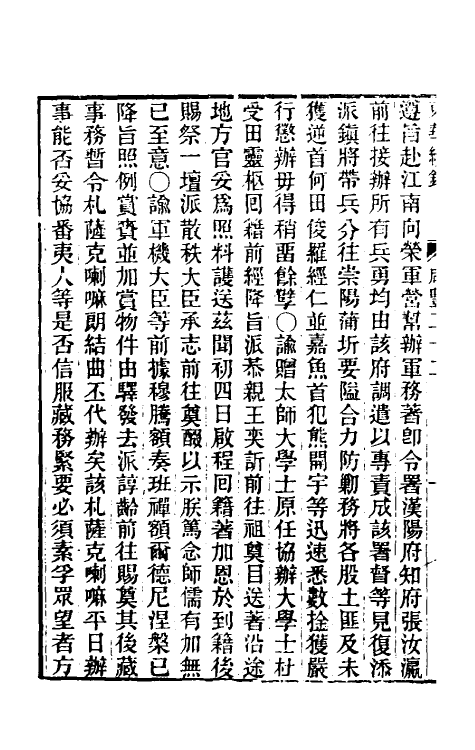 遵旨赴江南向榮軍營幫辦軍務著卽令署漢陽府知府張汝瀛
前往接辦所有兵勇均由該府調遣以專責成該署督等見復添
派鎭將帶兵分往崇陽蒲圻要隘合力防勦務將各股土匪及未
獲逆首何田俊羅經仁並嘉魚首犯熊開宇等迅速悉數拴獲嚴
行懲辦毋得稍畱餘孼〇諭贈太師大學士原任協辦大學士杜
受田靈柩回籍前經降旨派恭親王奕訢前往祖奠目送著沿途
地方官妥爲照料護送茲聞初四日啟程回籍著加恩於到籍後
賜祭一壇派散秩大臣承志前往奠醊以示朕篤念師儒有加無
已至意〇諭軍機大臣等前據穆騰額奏班禪額爾德尼涅槃已
降旨照例賞賚並加賞物件由驛發去派諄齡前往賜奠其後藏
事務暫令札薩克喇嘛朗結曲丕代辦矣該札薩克喇嘛平日辦
事能否妥協番夷人等是否信服藏務緊要必須素孚眾望者方